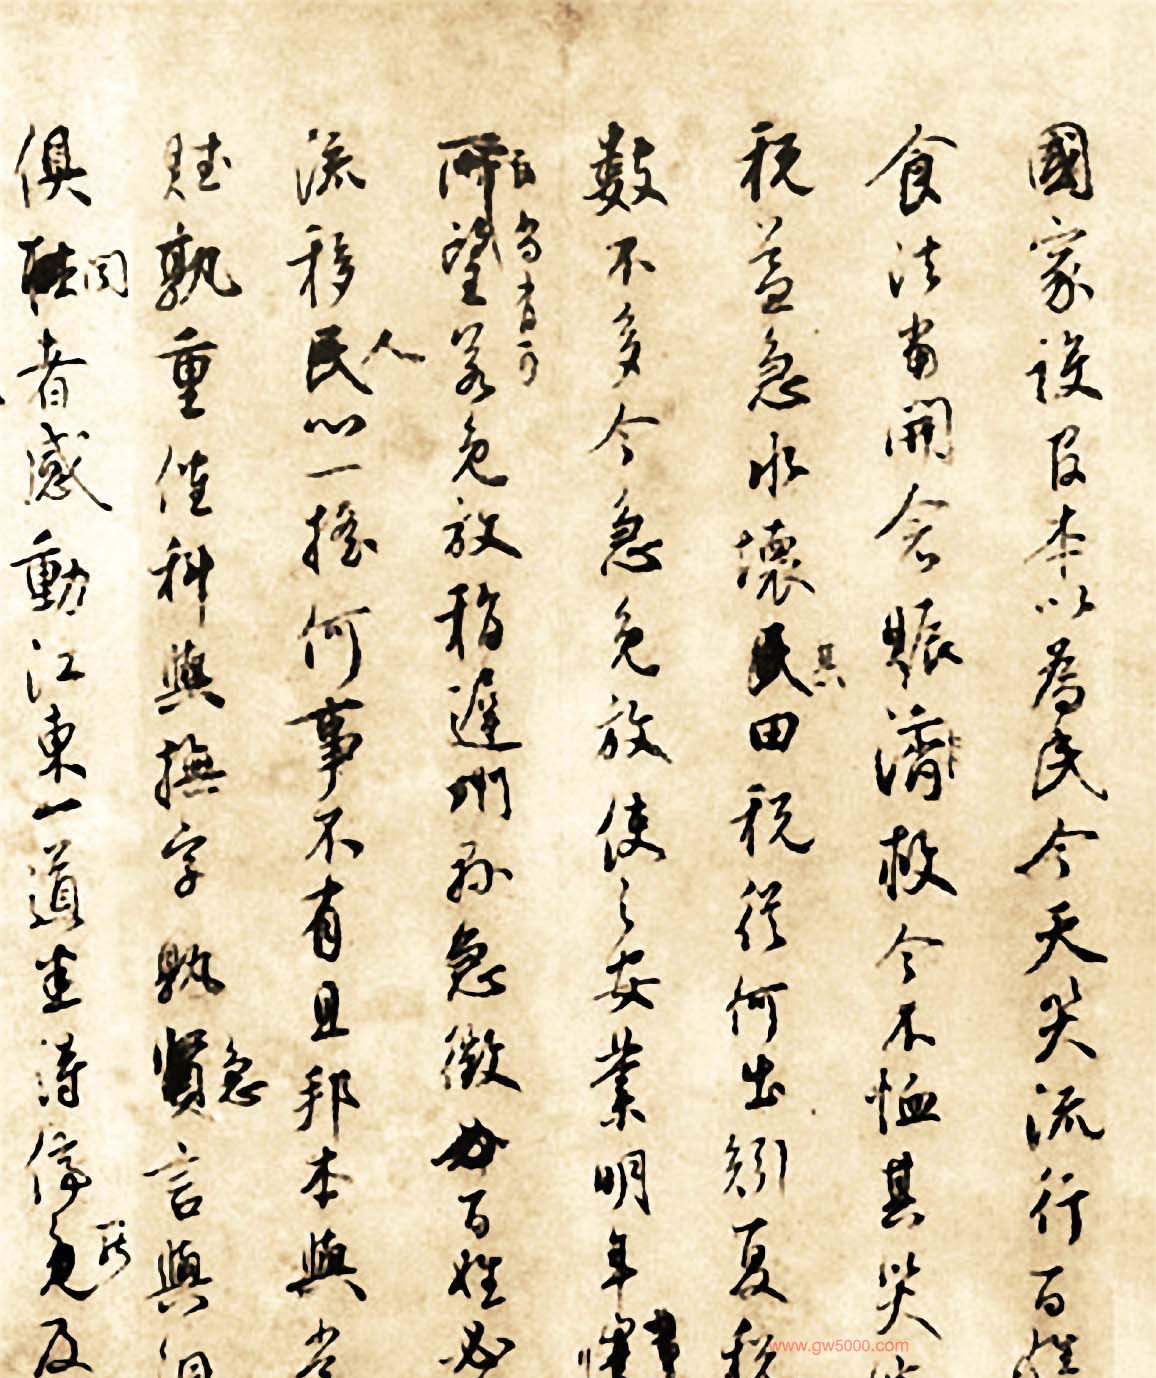 國家設官本以為民今天災流行百姓
食法當開倉賑濟救今不恤其災
税益急水壞其田税從何出矧夏税
數不多今急免放使之安業明年
所望若免放稍遲州縣急徵百姓必
百尚有可
流移人心一搖何事不有且邦本與常
賦孰重催科與撫字孰急言與
俱聞者感動江東一道塗得停免及
www.gw5000.com